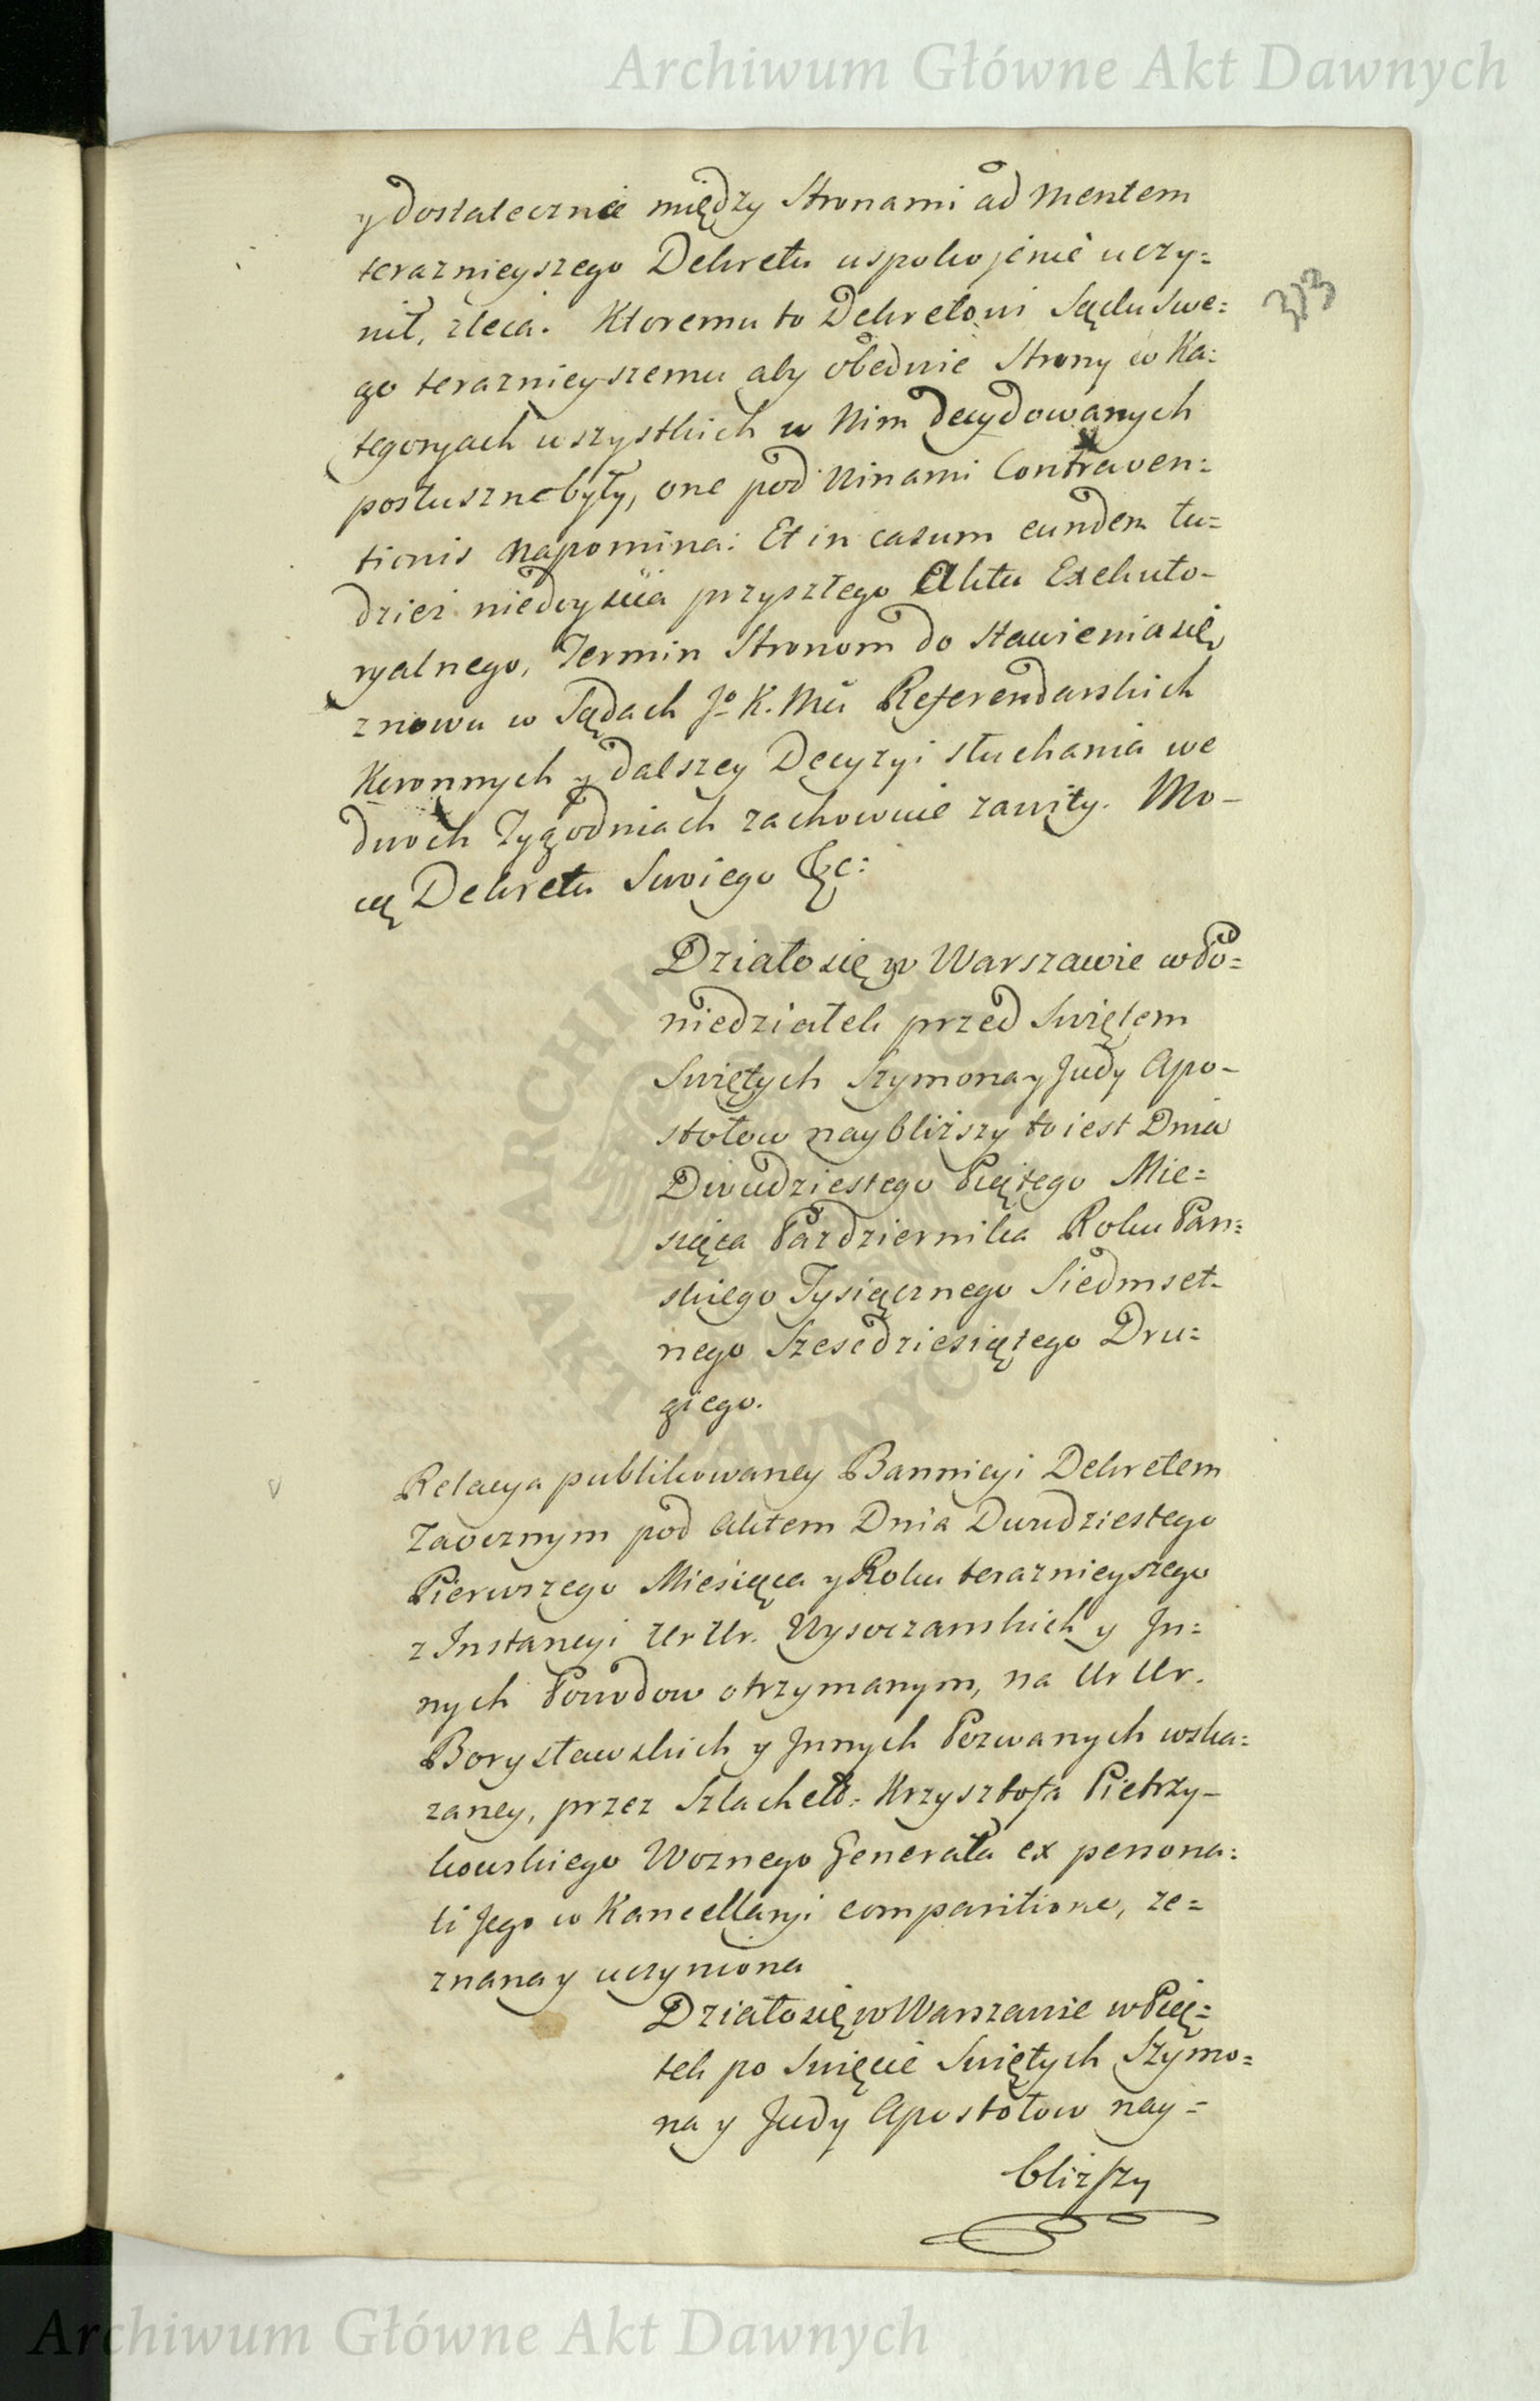 Archiwum Główne Akt Dawnych
y dostatecznie między Stronami ad mentem
teraznieyszego Dekretu uspokojenie uczy=
nił, zleca. Ktoremu to Dekretowi Sądu Swe=
go teraznieyszemu aby obedwie Strony w Ka=
tegoryach wszystkich w Nim decydowanych
posłuszne były, one pod Winami Contraven=
tionis napomina: Et in casum eundem tu=
dziez niedoyscia przyszłego Aktu Exekuto-
ryalnego, Termin Stronom do stawienia się
znowu w Sądach Jo K. Mci Referendarskich
Koronnych y dalszey Decyzyi słuchania we
dwoch Tygodniach zachowuie zawity. Mo-
cą Dekretu Swoiego &c:
313
Działo się w Warszawie w Po=
niedziałek przed Swiętem
Swiętych Szymona y Judy Apo-
stołow naybliższy to iest Dnia
Dwudziestego Piątego Mie=
siąca Pazdziernika Roku Pan=
skiego Tysiącznego Siedmset-
nego Szescdziesiątego Dru=
giego.
Relacya publikowaney Bannicyi Dekretem
Zaocznym pod Aktem Dnia Dwudziestego
Pierwszego Miesiąca y Roku teraznieyszego
z Instancyi Ur Ur. Wysoczanskich y In=
nych Powodow otrzymanym, na Ur Ur.
Borysławskich y Innych Pozwanych wska=
zaney, przez Szlachetn: Krzysztofa Pietrzy-
kowskiego Woznego Generała ex persona=
li Jego w Kancellaryi comparitione, ze=
znana y uczyniona
Działo się w Warszawie w Pią=
tek po Swięcie Swiętych Szymo=
na y Judy Apostołow nay=
bliższy
ARCHIWUM GŁÓWNE AKT DAWNYCH
Archiwum Główne Akt Dawnych